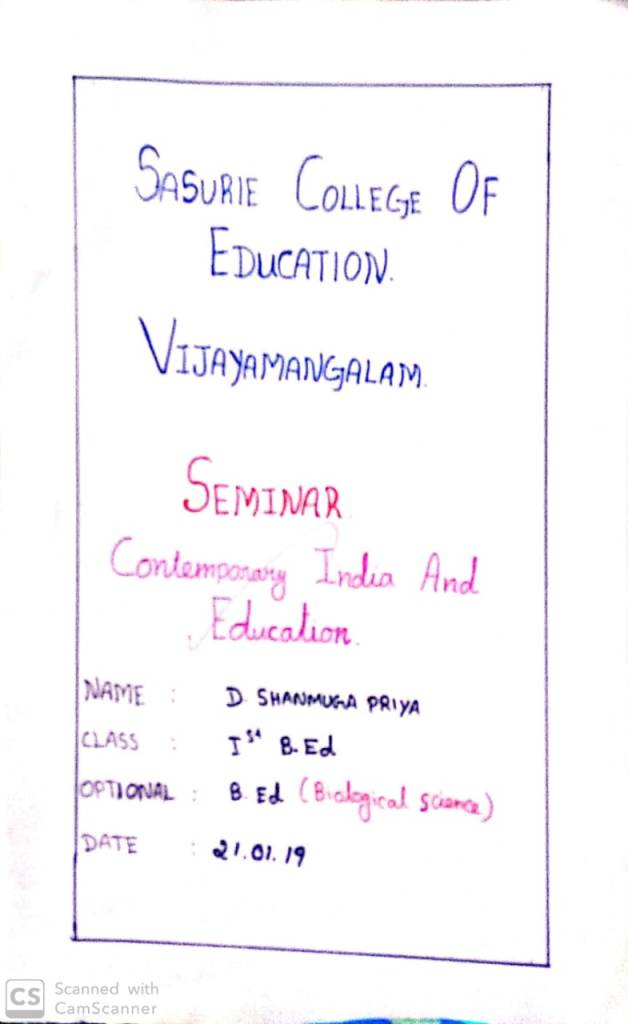 SASURIE COLLEGE OF
EDUCATION.
VIJAYAMANGALAM.
SEMINAR
Contemporary India And
Education.
NAME : D. SHANMUGA PRIYA
CLASS : I st B.Ed
OPTIONAL : B. Ed (Biological science)
DATE : 21.01.19
CS Scanned with
CamScanner